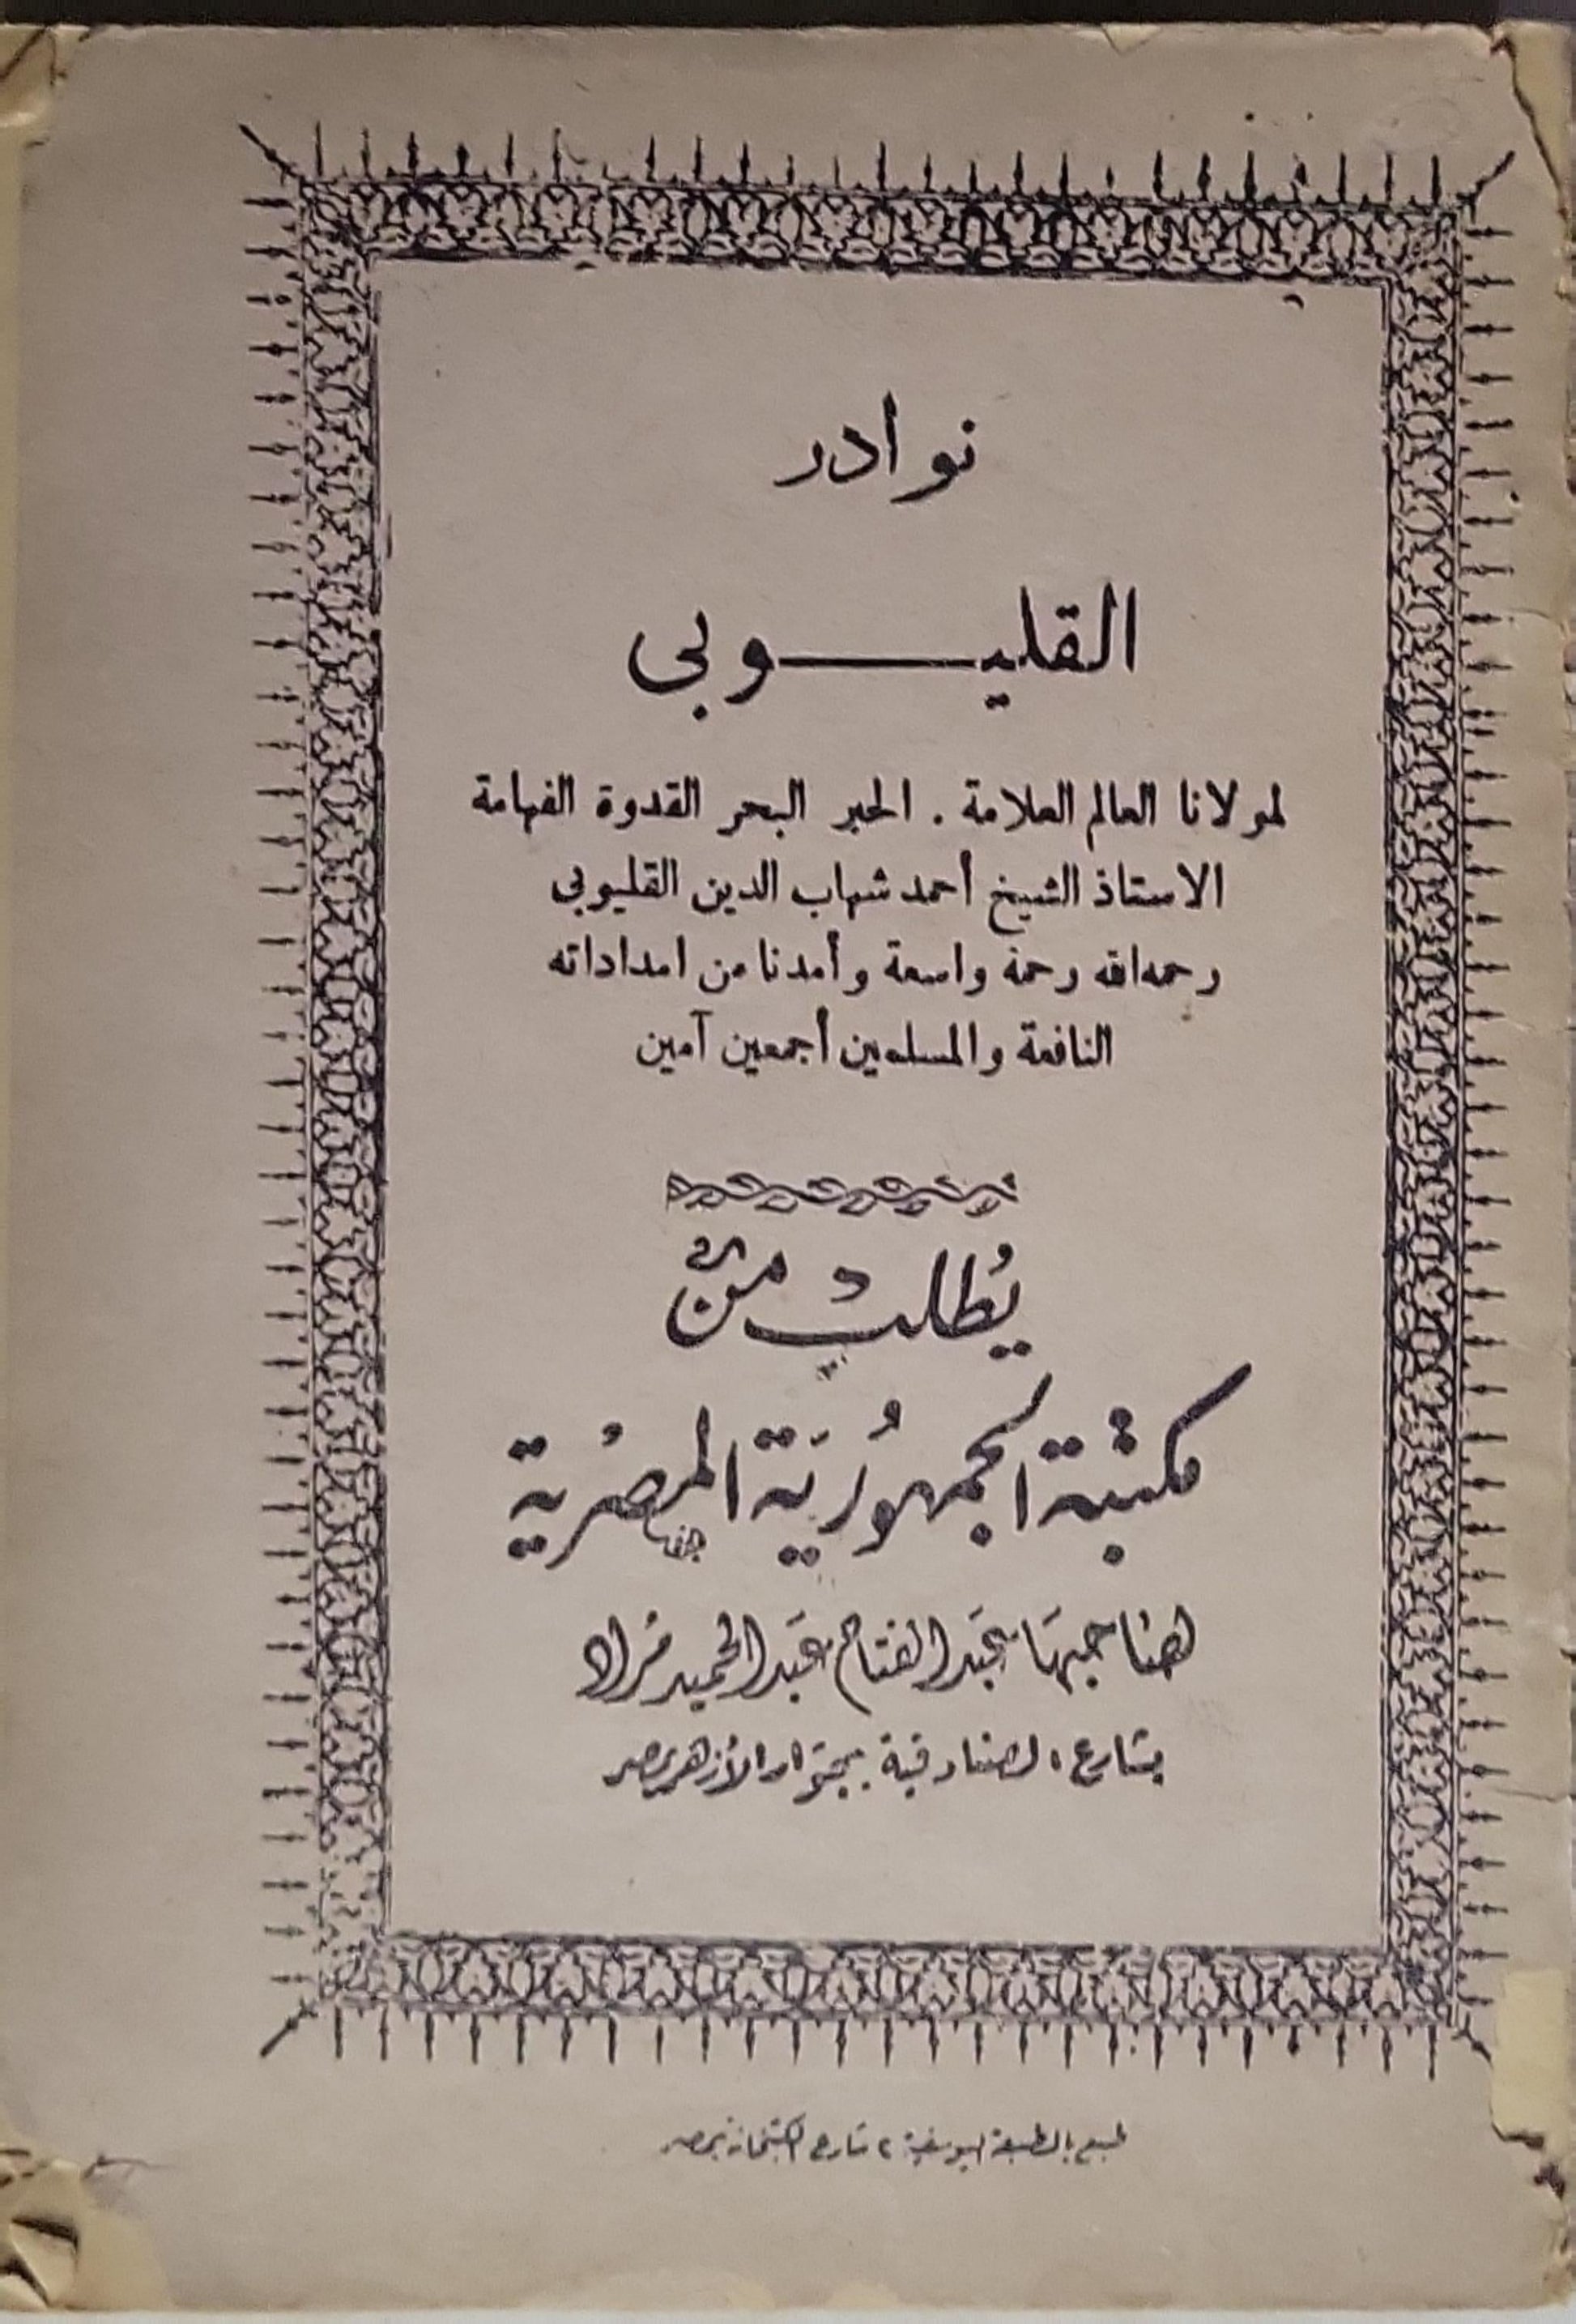 نوادر
القليوبى
لمولانا العالم العلامة . الحبر البحر القدوة الفهامة
الاستاذ الشيخ أحمد شهاب الدين القليوبى
رحمه الله رحمة واسعة وأمدنا من امداداته
النافعة والمسلمين أجمعين آمين
يُطلبُ منْ
مكتبة الجمهُوريَة المصْرية
لصَاحبهَا عَبَد الفتاح عَبَد الحميد مُراد
بشارع الصنادقية بجوار الأزهر بمصر
طبع بالمطبعة اليوسفية ٢ شارع الكتبخانة بمصر